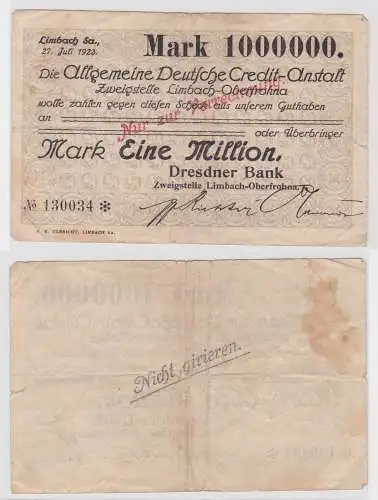 Limbach Sa.,
27. Juli 1923.
Mark 1000000.
Die Allgemeine Deutsche Credit-Anstalt
Zweigstelle Limbach-Oberfrohna
wolle zahlen gegen diesen Scheck aus unserem Guthaben
an
Nur zur Verrechnung.
oder Überbringer
Mark Eine Million.
Dresdner Bank
Zweigstelle Limbach-Oberfrohna.
№ 130034 ✻
LIMBACH SA.
Nicht girieren.